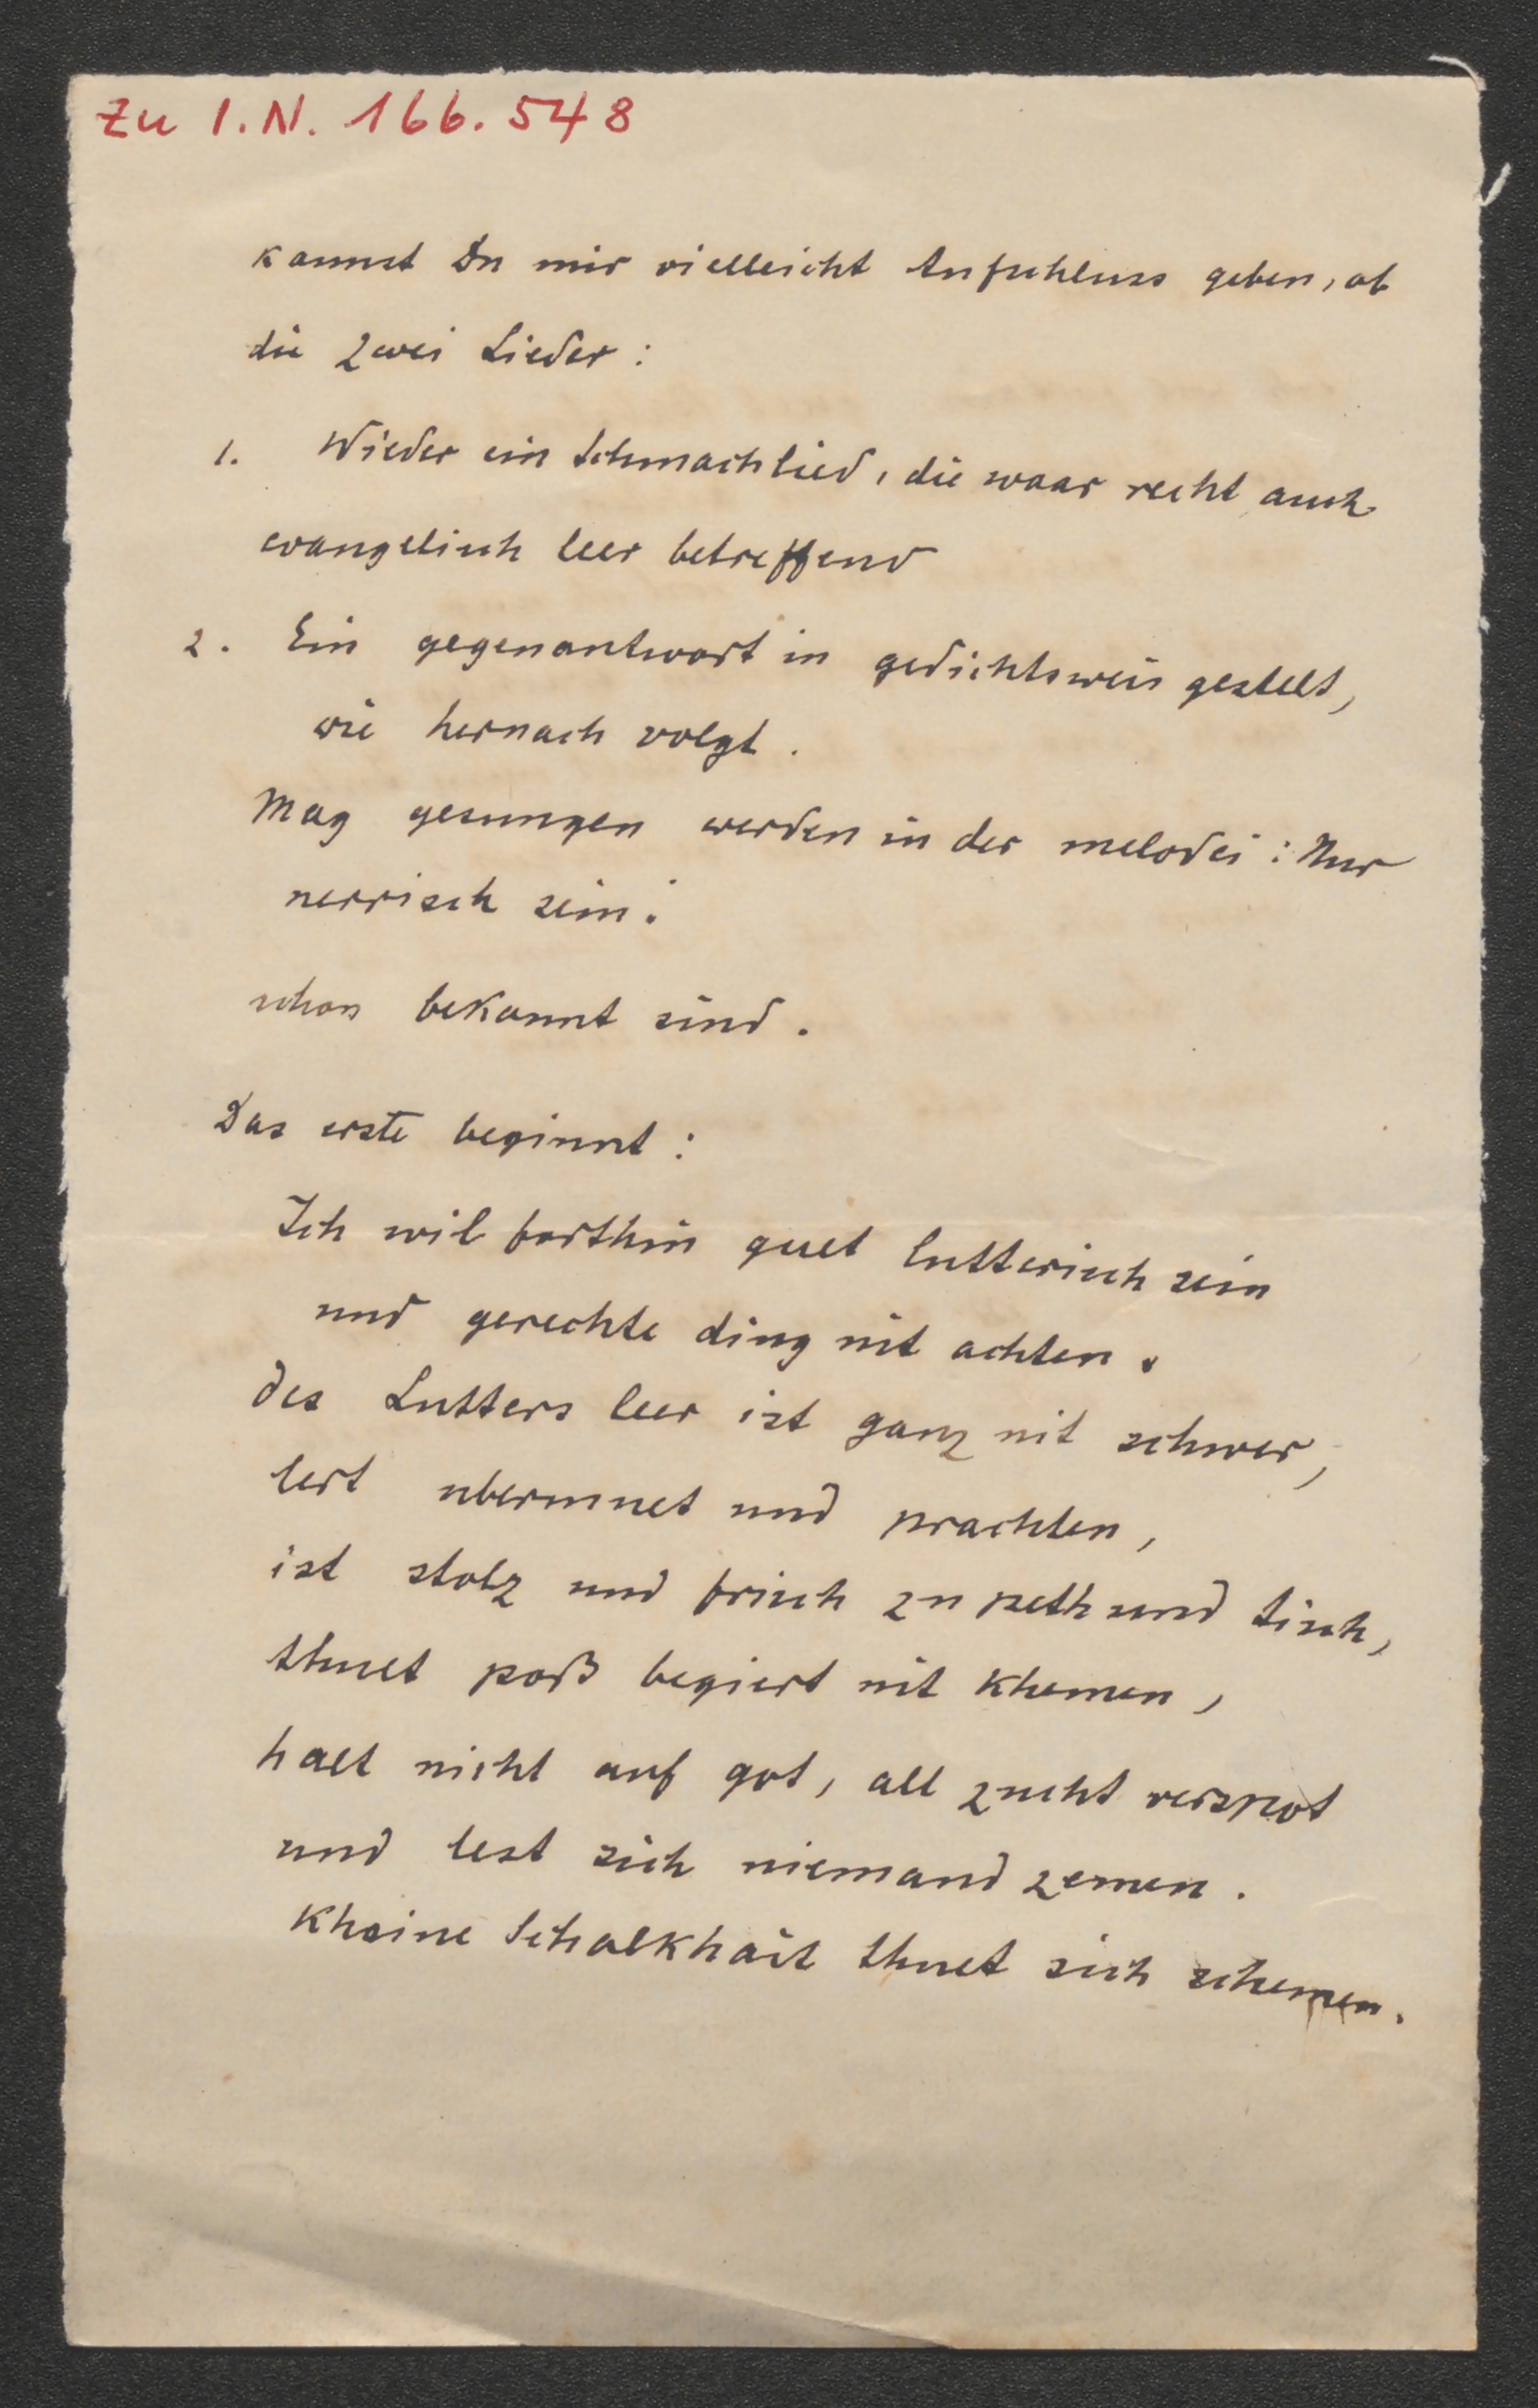 Zu I.N. 166.548
kannst Du mir vielleicht Aufschluss geben, ob
die zwei Lieder:
1. Wieder ein Schmachlied, die waar recht auch
evangelisch leer betreffend
2. Ein gegenantwort in gedichtsweis gestelt,
wie hernach volgt.
Mag gesungen werden in der melodei: Nur
nerrisch sein:
schon bekannt sind.
Das erste beginnt:
Ich wil forthin guet lutterisch sein
und gerechte ding nit achten.
des Lutters leer ist ganz nit schwer,
lert ubermuet und prachten,
ist stolz und frisch zu peth und tisch,
thuet poß begiert nit khemen,
halt nicht auf got, all zucht verspot
und lest sich niemand zemen.
Khaine Schalkhait thuet sich schemen.